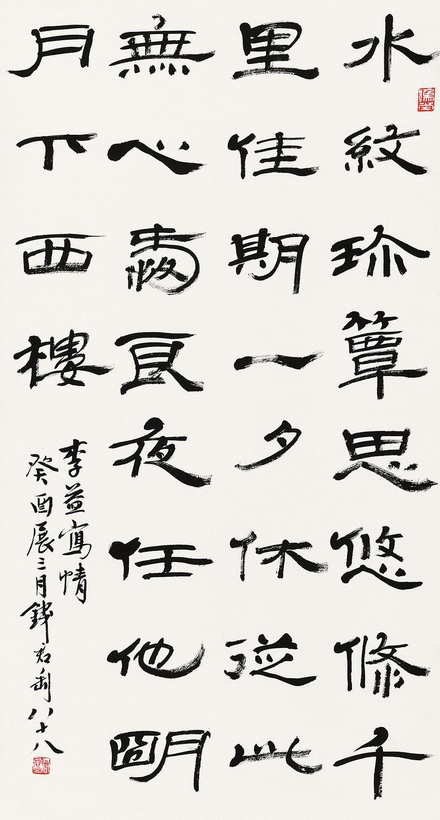 水紋珍簟思悠悠千
里佳期一夕休從此
無心愛良夜任他朙
月下西樓
李益寫情
癸酉展三月錢君匋八十八